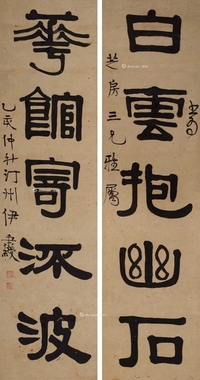 白雲抱幽石
芝房三兄雅屬
華館寄流波
乙亥仲秋汀州伊秉綬